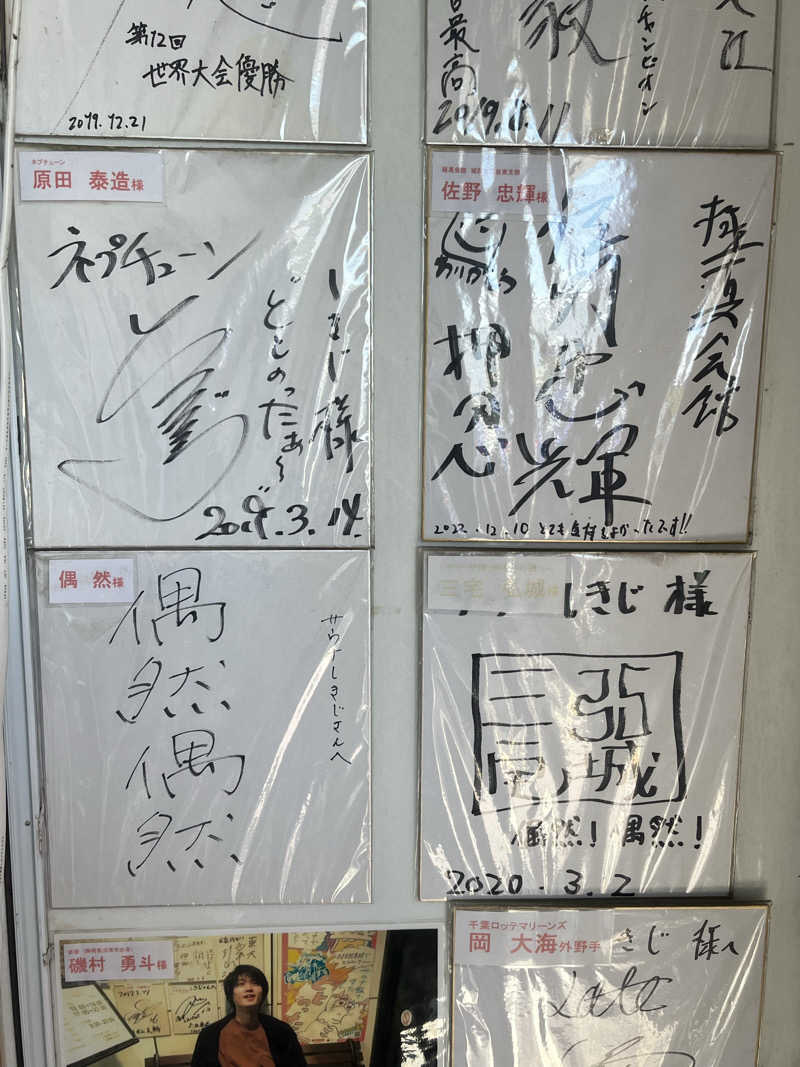 第12回
世界大会優勝
2019.12.21
最高
チャンピオン
ネプチューン
原田 泰造様
ネプチューン
しきじ様
ととのったぁ〜
2019.3.14.
佐野 忠輝様
極真会館
佐野忠輝
押忍
2022.12.10 とても気持ちよかったです!!
偶 然様
サウナしきじさんへ
偶然
偶然
三宅 弘城様
しきじ 様
三宅
弘城
偶然!偶然!
2020.3.2
磯村 勇斗様
千葉ロッテマリーンズ
岡 大海外野手
きじ 様へ